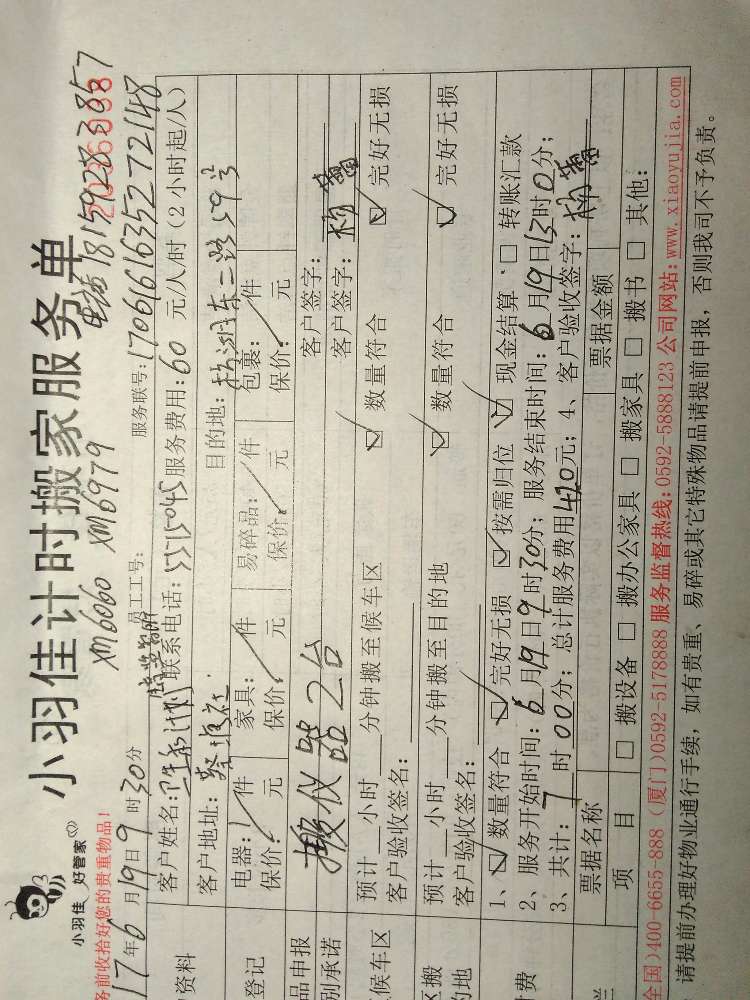 小羽佳 好管家
小羽佳计时搬家服务单
电话 18159283857
XM6060 XM6979
务前收拾好您的贵重物品!
17年6月19日9时30分 员工工号: 服务联号:1706161635272148
客户姓名: 联系电话:5515045 服务费用:60元/人/时(2小时起/人)
资料
客户地址: 目的地:
登记
电器: 件 家具: 件 易碎品: 件 包裹: 件
保价: 元 保价: 元 保价: 元 保价: 元
品申报
搬仪器2台 客户签字:
别承诺
客户签字:
候车区
预计 小时 分钟搬至候车区 ☑ 数量符合 ☑ 完好无损
客户验收签名:
区搬
的地
预计 小时 分钟搬至目的地 ☑ 数量符合 ☑ 完好无损
客户验收签名:
计费
1、☑ 数量符合 ☑ 完好无损 ☑ 按需归位 ☑ 现金结算 □ 转账汇款
2、服务开始时间:6月19日9时30分; 服务结束时间:6月19日13时0分;
3、共计:7时00分; 总计服务费用420元; 4、客户验收签字:
票据名称 票据金额
项 目 □ 搬设备 □ 搬办公家具 □ 搬家具 □ 搬书 □ 其他:
全国)400-6655-888 (厦门)0592-5178888 服务监督热线:0592-5888123 公司网站:www.xiaoyujia.com
请提前办理好物业通行手续,如有贵重、易碎或其它特殊物品请提前申报,否则我司不予负责。